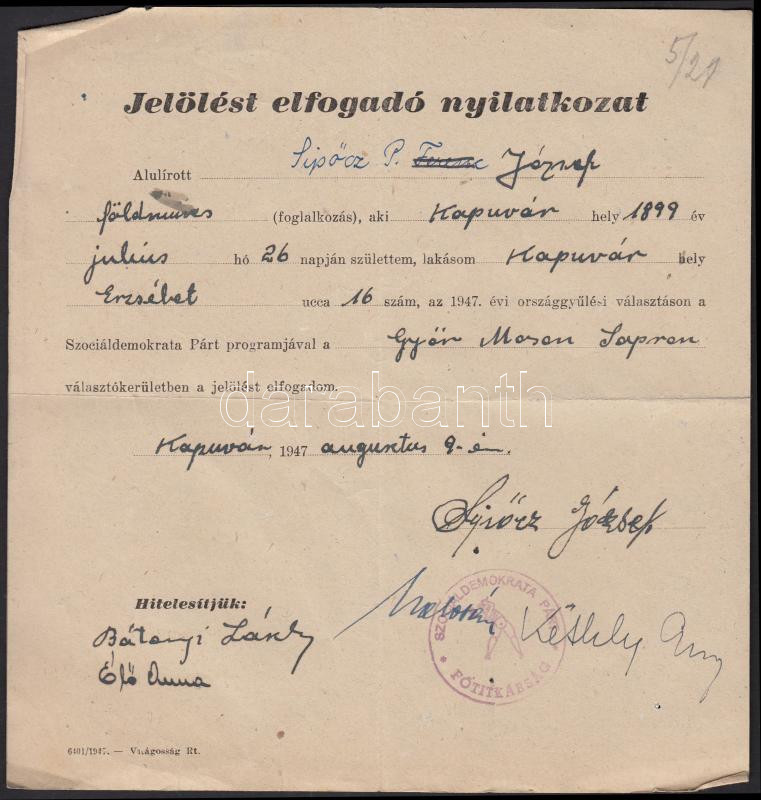 5/21
Jelölést elfogadó nyilatkozat
Alulírott Sipőcz P. Ferenc József
földműves (foglalkozás), aki Kapuvár hely 1899 év
julius hó 26 napján születtem, lakásom Kapuvár hely
Erzsébet ucca 16 szám, az 1947. évi országgyűlési választáson a
Szociáldemokrata Párt programjával a Győr Moson Sopron
választókerületben a jelölést elfogadom.
darabanth
Kapuvár, 1947 augusztus 9-én.
Sipőcz József
SZOCIÁLDEMOKRATA PÁRT
FŐTITKÁRSÁG
Kéthly Anna
Hitelesítjük:
Bátonyi László
Élő Anna
6401/1947. — Világosság Rt.